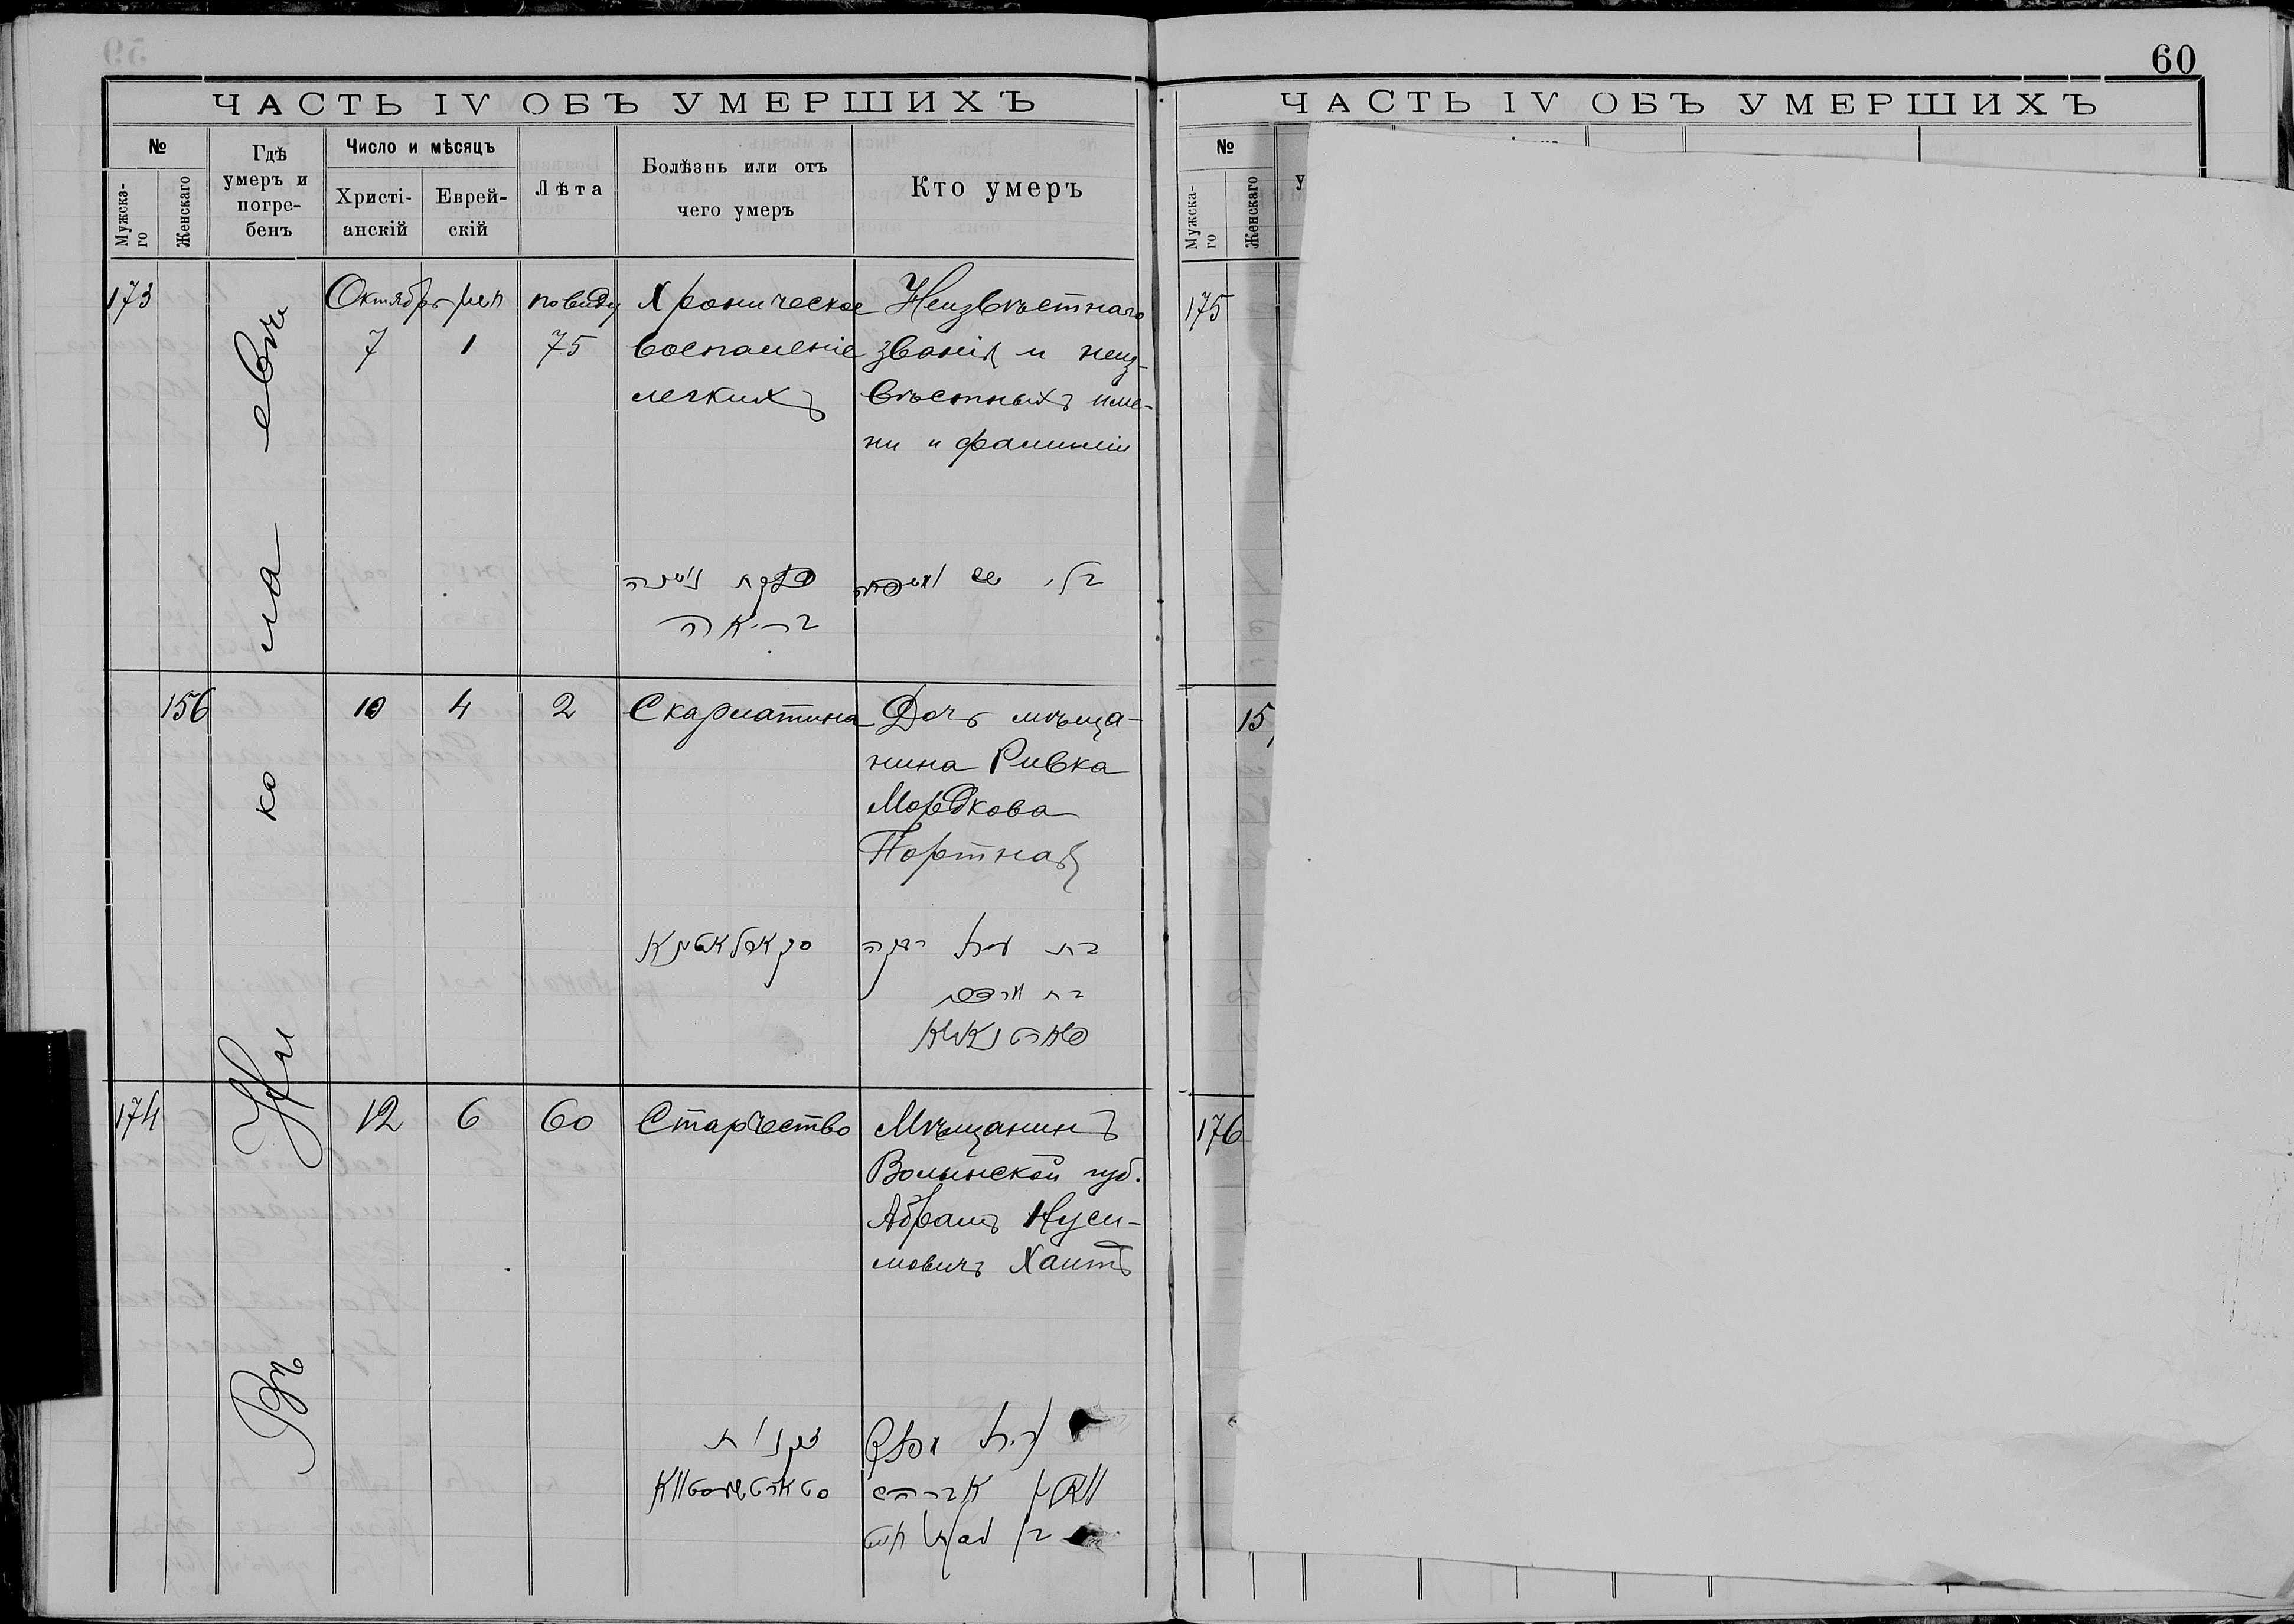 60
ЧАСТЬ IV ОБЪ УМЕРШИХЪ
№
Мужска-
го
Женскаго
Гдѣ
умеръ и
погре-
бенъ
Число и мѣсяцъ
Христі-
анскій
Еврей-
скій
Лѣта
Болѣзнь или отъ
чего умеръ
Кто умеръ
Въ
Ни
ко
ла
евѣ
173
Октябрь
7
1
по виду
75
Хроническое
воспаленіе
легкихъ
Неизвѣстнаго
званія и неиз-
вѣстныхъ име-
ни и фамиліи
156
10
4
2
Скарлатина
Дочь мѣща-
нина Ривка
Мордкова
Портная
בת
רבקה
בת מרדכי
174
12
6
60
Старчество
Мѣщанинъ
Волынской губ.
Абрамъ Нуси-
мовичъ Хаитъ
זקנות
אברהם
ЧАСТЬ IV ОБЪ УМЕРШИХЪ
№
Мужска-
го
Женскаго
175
15
176